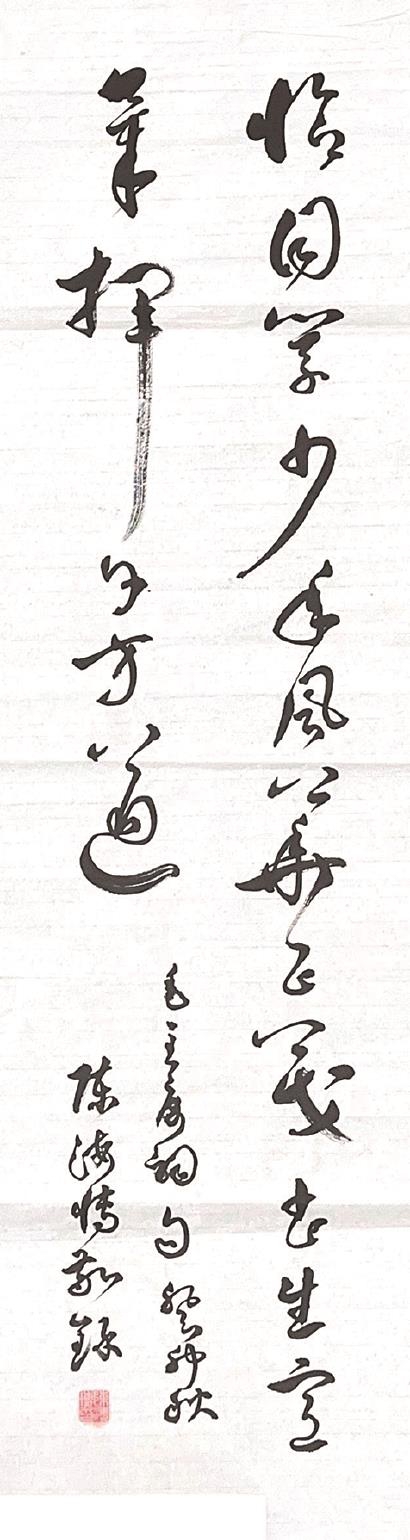 恰同学少年风华正茂书生意
气挥斥方遒
毛主席词句癸卯秋
陈海敬录